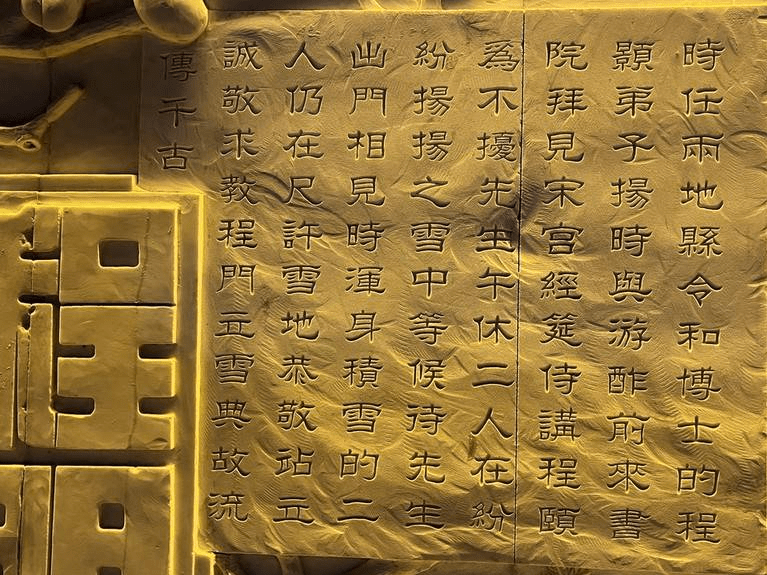 時任兩地縣令和博士的程
顥弟子揚時與游酢前來書
院拜見宋宮經筵侍講程頤
爲不擾先生午休二人在紛
紛揚揚之雪中等候待先生
出門相見時渾身積雪的二
人仍在尺許雪地恭敬站立
誠敬求教程門立雪典故流
傳千古